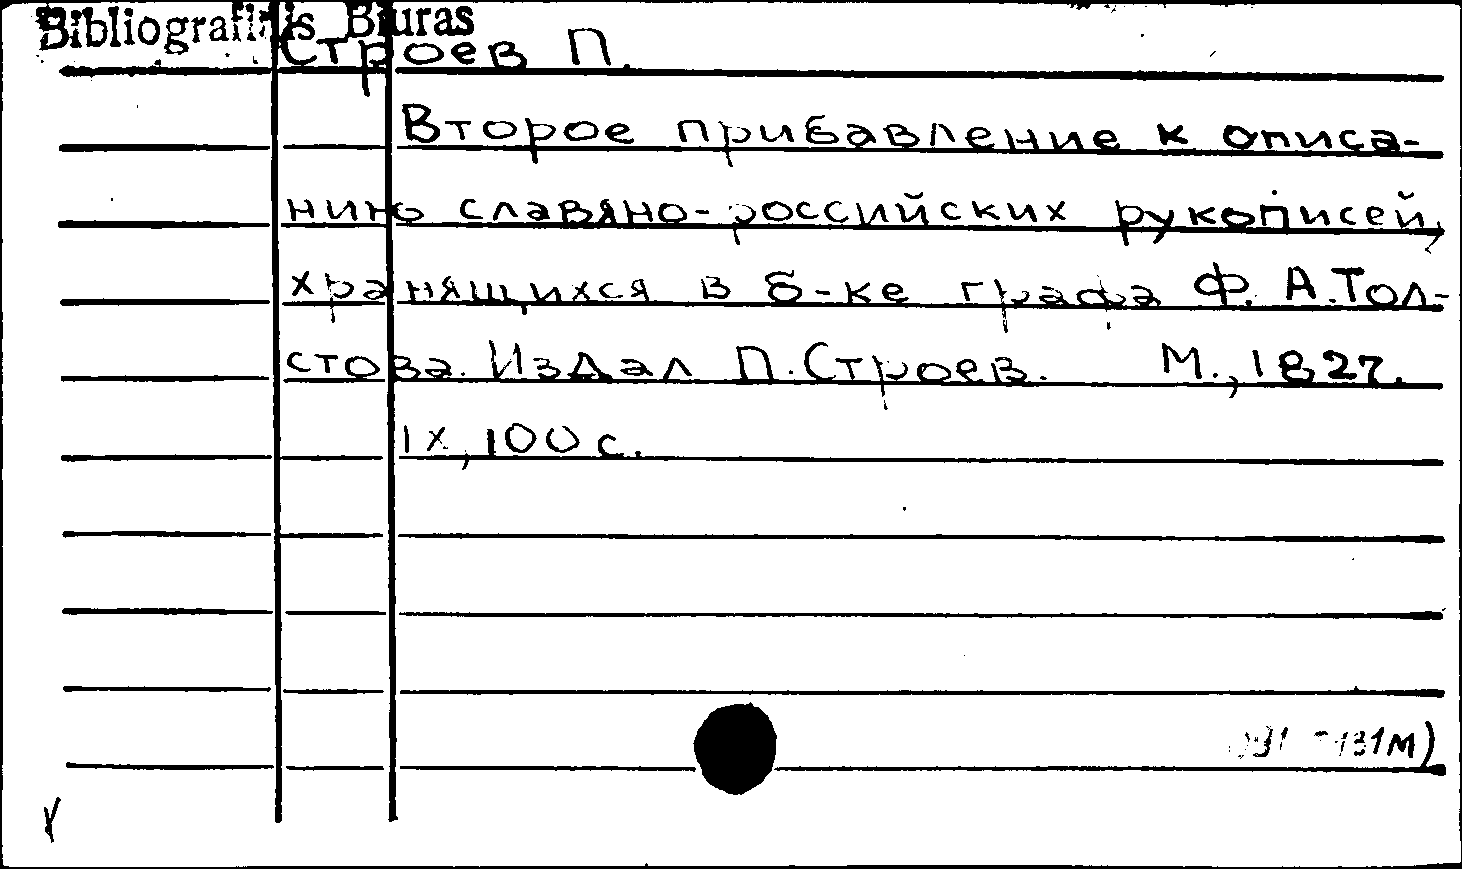 Bibliografinis Biuras
Строев П.
Второе прибавление к описа-
нию славяно-российских рукописей,
хранящихся в б-ке графа Ф. А. Тол-
стова. Издал П. Строев. М., 1827.
IX, 100 с.